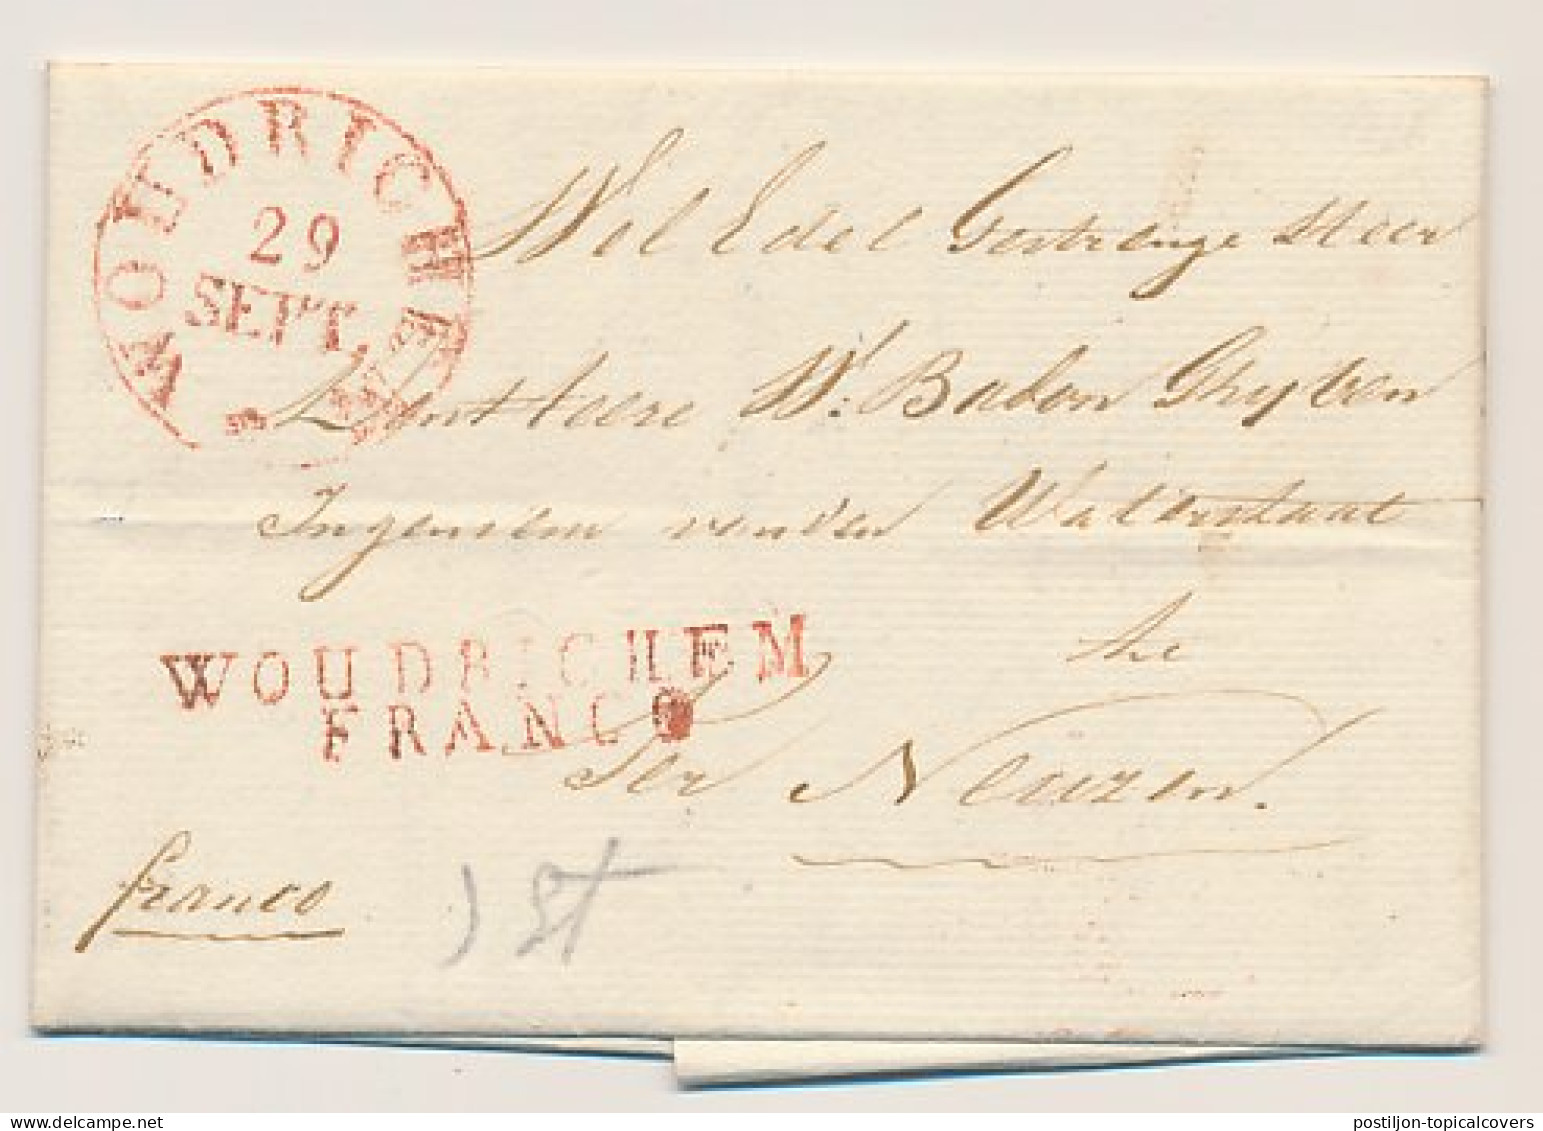 WOUDRICHEM
29
SEPT.
Wel Edel Gestrenge Heer
W. Badon Ghyben
Ingenieur van den Waterstaat
te
WOUDRICHEM
FRANCO
Ter Neuzen.
franco
delcampe.net
postiljon-topicalcovers